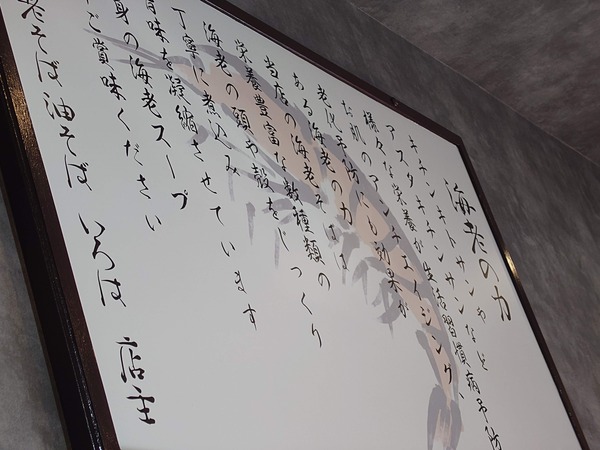 海老の力
キチンキトサンやなど
アスタキチンサン
様々な栄養が生活習慣病予防
た肌のアンチエイジング、
老化予防にも効果が
ある海老の力は
当店の海老みそは
栄養豊富な数種類の
海老の頭や殻をじっくり
丁寧に煮込み
旨味を凝縮させています
身の海老スープ
ご賞味ください
老そば油そば いろは 店主